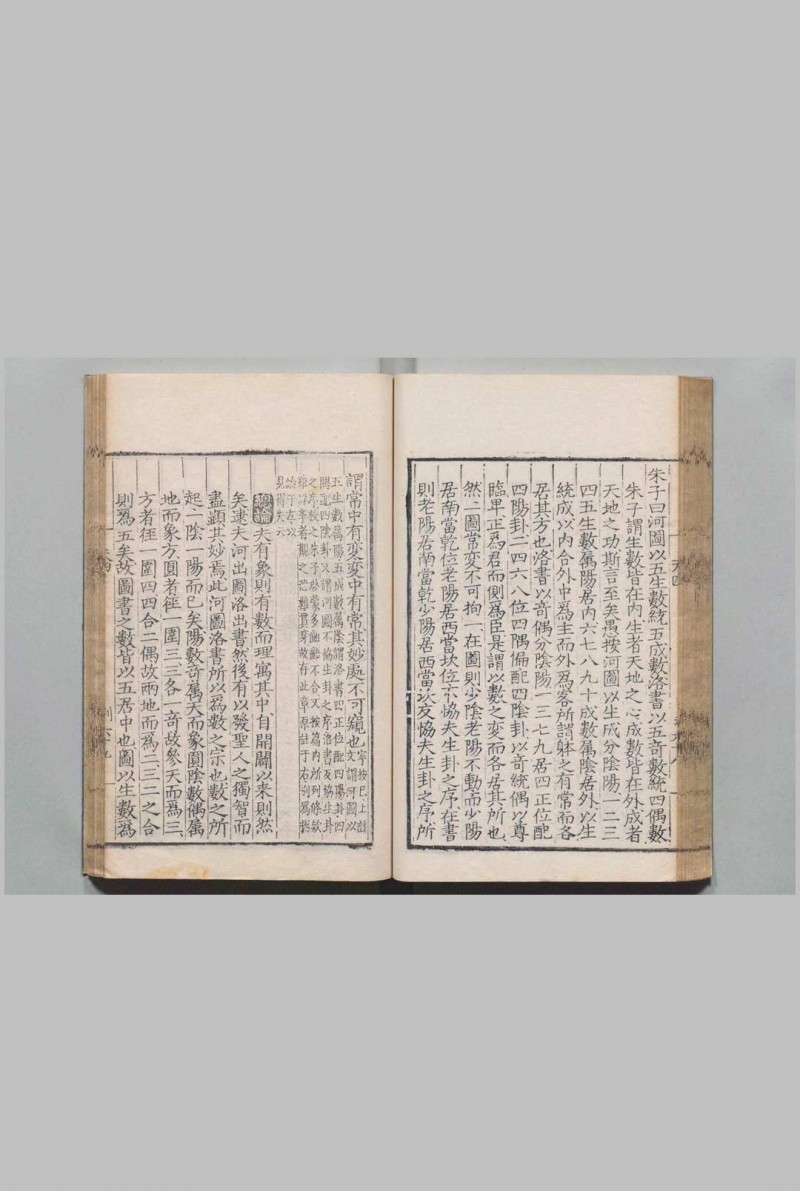 朱子曰河圖以五生數統五成數洛書以五奇數統四偶數
朱子謂生數皆在内生者天地之心成數皆在外成者
天地之功斯言至矣愚按河圖以生成分陰陽一二三
四五生數屬陽居内六七八九十成數屬陰居外以生
統成以内合外中爲主而外爲客所謂躰之有常而各
居其方也洛書以奇偶分陰陽一三七九居四正位配
四陽卦二四六八位四隅偏配四陰卦以奇統偶以尊
臨卑正爲君而側爲臣是謂以數之变而各居其所也
然二圖常変不可拘一在圖則少陰老陽不動而少陽
居南當乾位老陽居西當坎位不恊夫生卦之序在書
則老陽居南當乾少陽居西當坎友恊夫生卦之序所
謂常中有変変中有常其妙處不可窺也
按已上註文謂河圖以
五生數屬陽五成數屬陰謂洛書四正位配四陽卦四
隅配四陰卦又謂河圖不恊生卦之序洛書友恊生卦
之序
夫有象則有數而理寓其中自開闢以来則然
矣逮夫河出圖洛出書然後有以發聖人之獨智而
盡顯其妙焉此河圖洛書所以爲數之宗也數之所
起一陰一陽而已矣陽數奇屬天而象圓陰數偶屬
地而象方圓者徑一圍三三各一奇故參天而爲三
方者徑一圍四四合二偶故兩地而爲二三二之合
則爲五矣故圖書之數皆以五居中也圖以生數爲